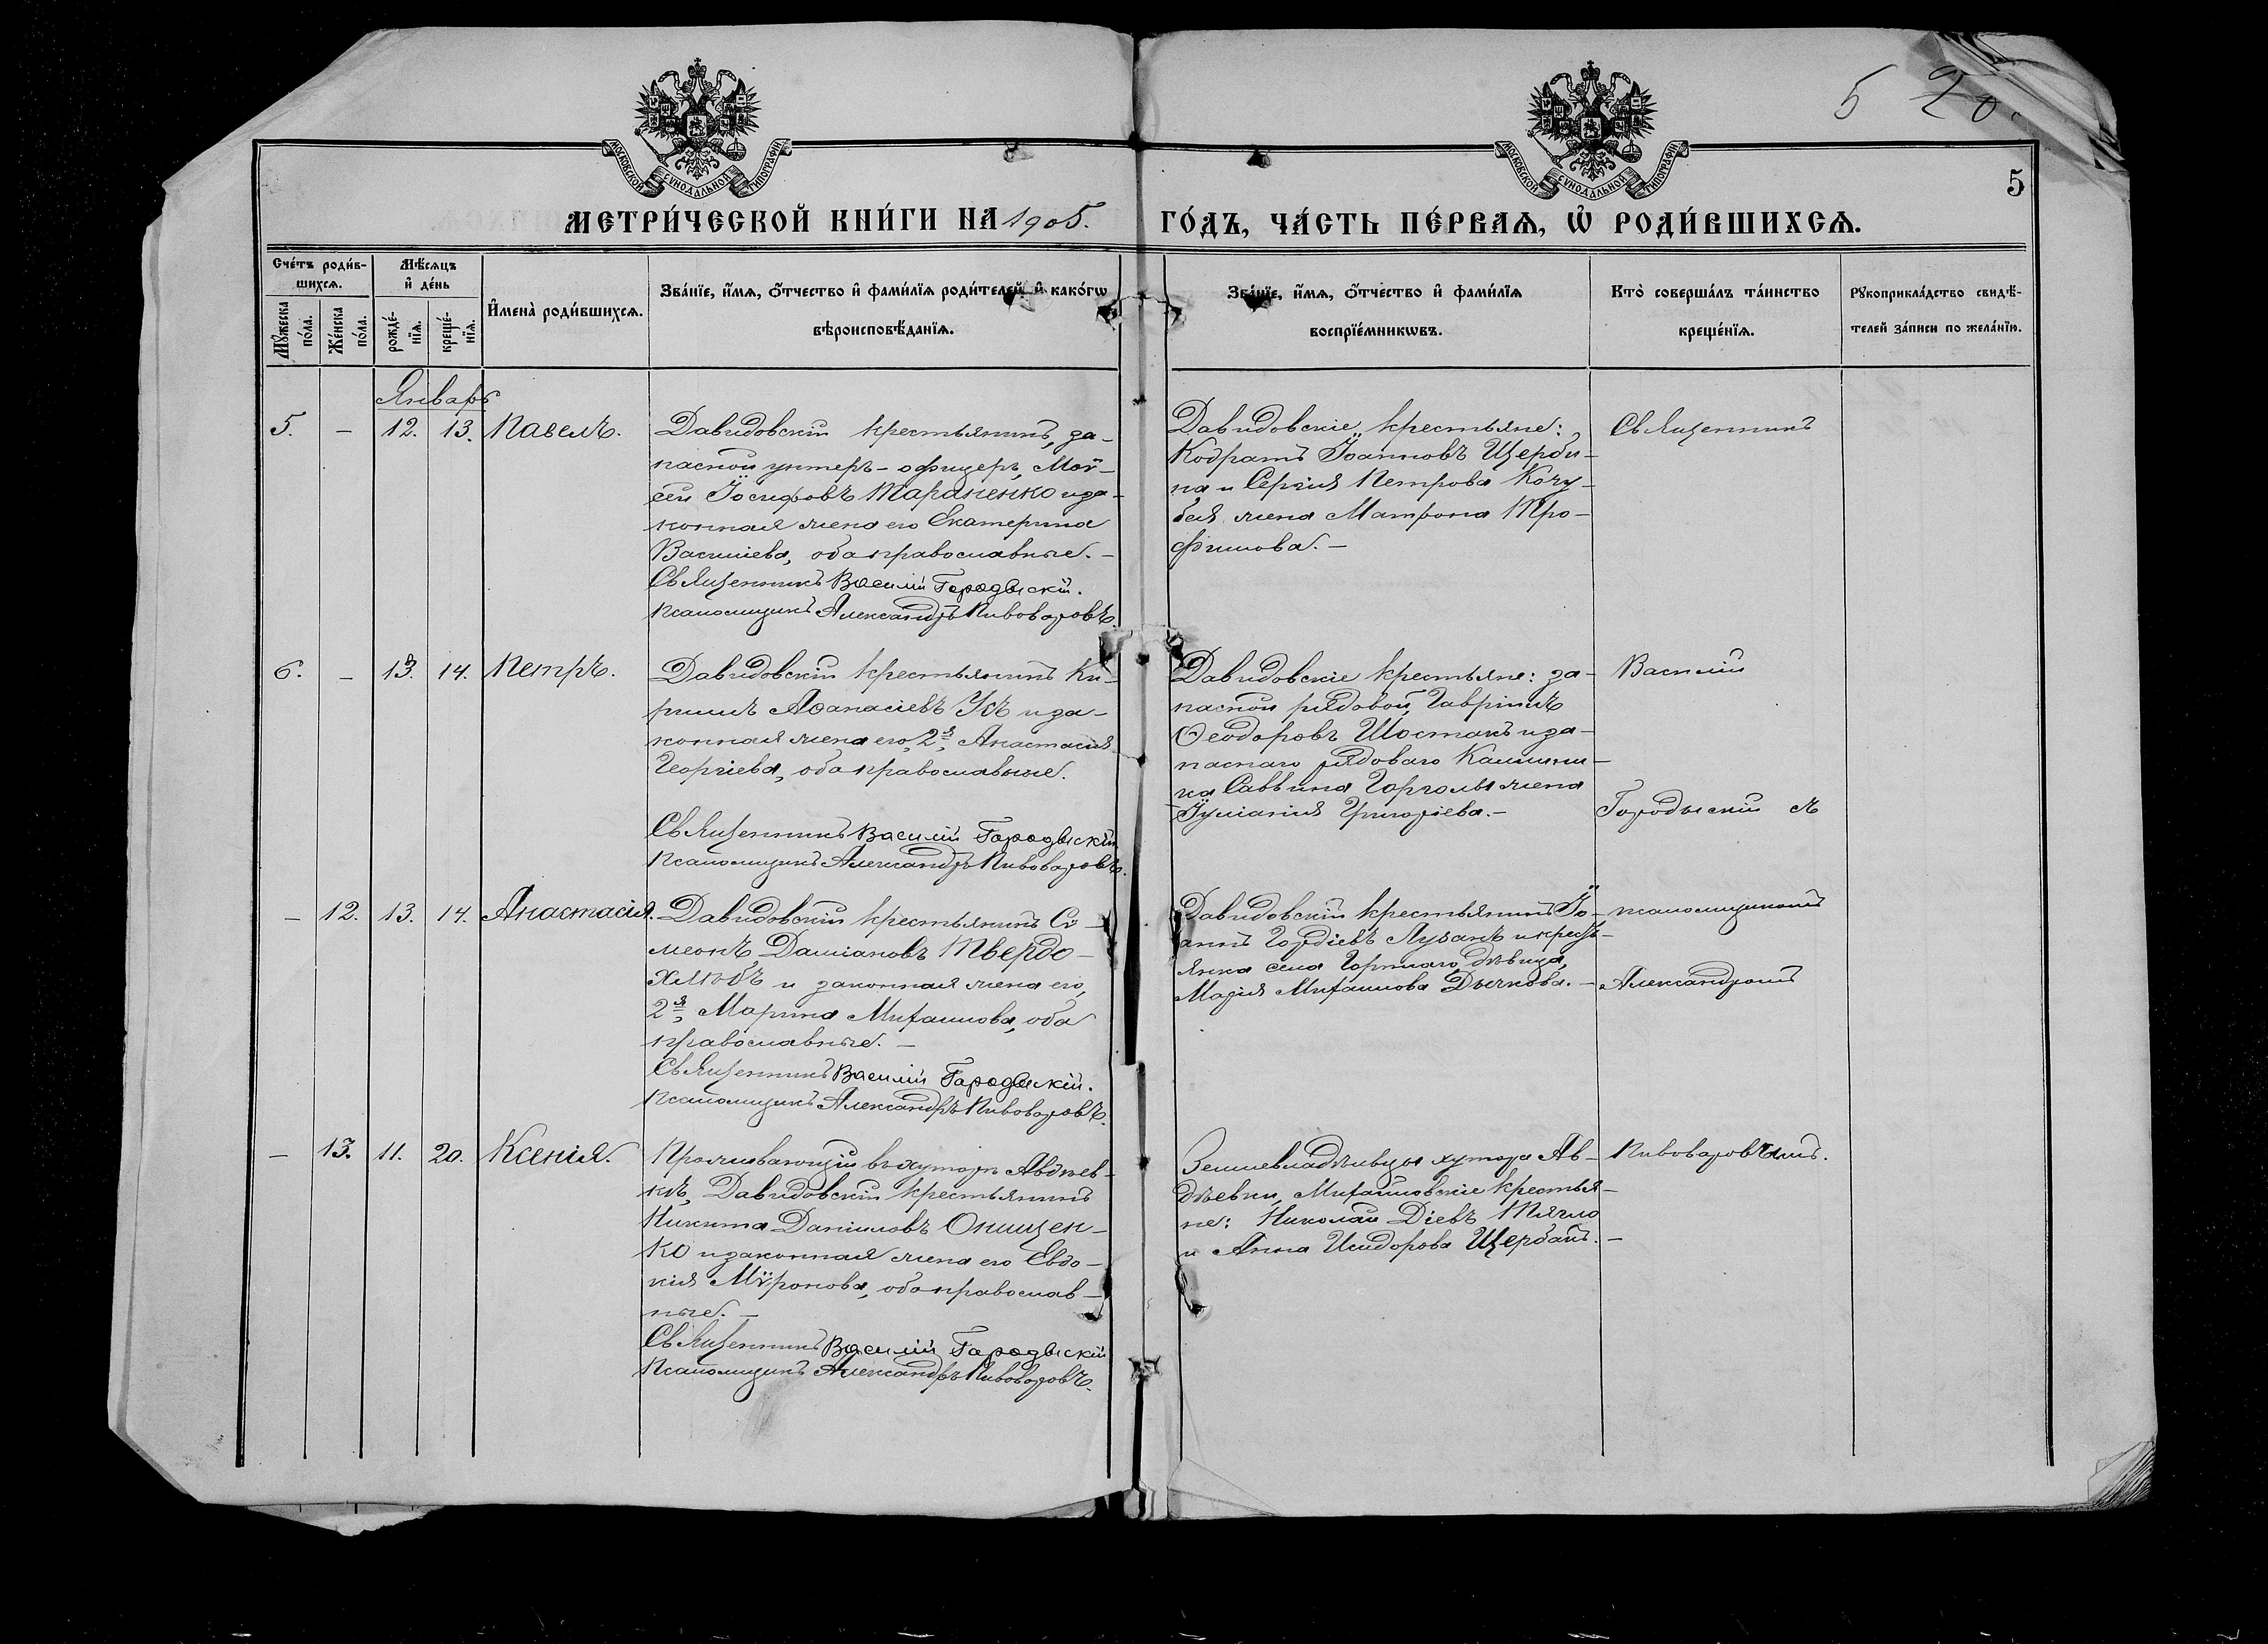 5 20.
5
МОСКОВСКОЙ СѴНОДАЛЬНОЙ ТИПОГРАФІИ
МОСКОВСКОЙ СѴНОДАЛЬНОЙ ТИПОГРАФІИ
МЕТРИ́ЧЕСКОЙ КНИ́ГИ НА 1905. ГО́ДЪ, ЧА́СТЬ ПЕ́РВАѦ, Ѡ҆ РОДИ́ВШИХСѦ.
Сче́тъ роди́в-
шихсѧ.
Мꙋ́жеска по́ла.
Же́нска по́ла.
Мѣ́сѧцъ
и҆ де́нь
рожде́-
нїѧ.
креще́-
нїѧ.
И҆мена̀ роди́вшихсѧ.
Зва́нїе, и҆́мѧ, ѻ҆́тчество и҆ фами́лїѧ роди́телей и҆ како́гѡ
вѣроисповѣ́данїѧ.
Зва́нїе, и҆́мѧ, ѻ҆́тчество и҆ фами́лїѧ
воспрїе́мникѡвъ.
Кто̀ соверша́лъ та́инство
креще́нїѧ.
Рꙋкоприкла́дство свидѣ́-
телей за́писи по жела́нїю.
Январь
5. – 12. 13. Павелъ.
Давидовскій крестьянинъ, за-
пасной унтеръ-офицеръ, Моѵ-
сей Іосифовъ Тараненко и за-
конная жена его Екатерина
Василіева, оба православные. –
Священникъ Василій Городыскій.
Псаломщикъ Александръ Пивоваровъ.
Давидовскіе крестьяне:
Кодратъ Іоанновъ Щерби-
на и Сергія Петрова Кочу-
бея жена Матрона Тро-
фимова. –
Священникъ
6. – 13. 14. Петръ.
Давидовскій крестьянинъ Ки-
риллъ Аѳанасіевъ Усъ и за-
конная жена его, 2я, Анастасія
Георгіева, оба православные.
Священникъ Василій Городыскій
Псаломщикъ Александръ Пивоваровъ.
Давидовскіе крестьяне: за-
пасной рядовой Гавріилъ
Ѳеодоровъ Шостакъ и за-
паснаго рядоваго Каллини-
ка Саввина Горголы жена
Іуліанія Григоріева. –
Василій
Городыскій съ
– 12. 13. 14. Анастасія.
Давидовскій крестьянинъ Сѵ-
меонъ Даміановъ Твердо-
хлѣбъ и законная жена его,
2я, Марина Михаилова, оба
православные. –
Священникъ Василій Городыскій.
Псаломщикъ Александръ Пивоваровъ.
Давидовскій крестьянинъ Іо-
аннъ Гордіевъ Лубанъ и кресть-
янка села Горѣлаго, дѣвица,
Марія Михаилова Дьячкова. –
псаломщикомъ
Александромъ
– 13. 11. 20. Ксенія.
Проживающій въ хуторѣ Авдѣев-
кѣ, Давидовскій крестьянинъ
Никита Даніиловъ Онищен-
ко и законная жена его Евдо-
кія Мѵронова, оба православ-
ные. –
Священникъ Василій Городыскій
Псаломщикъ Александръ Пивоваровъ.
Землевладѣльцы хутора Ав-
дѣевки, Михайловскіе крестья-
не: Николай Діевъ Тягло
и Анна Исидорова Щербань. –
Пивоваровымъ.